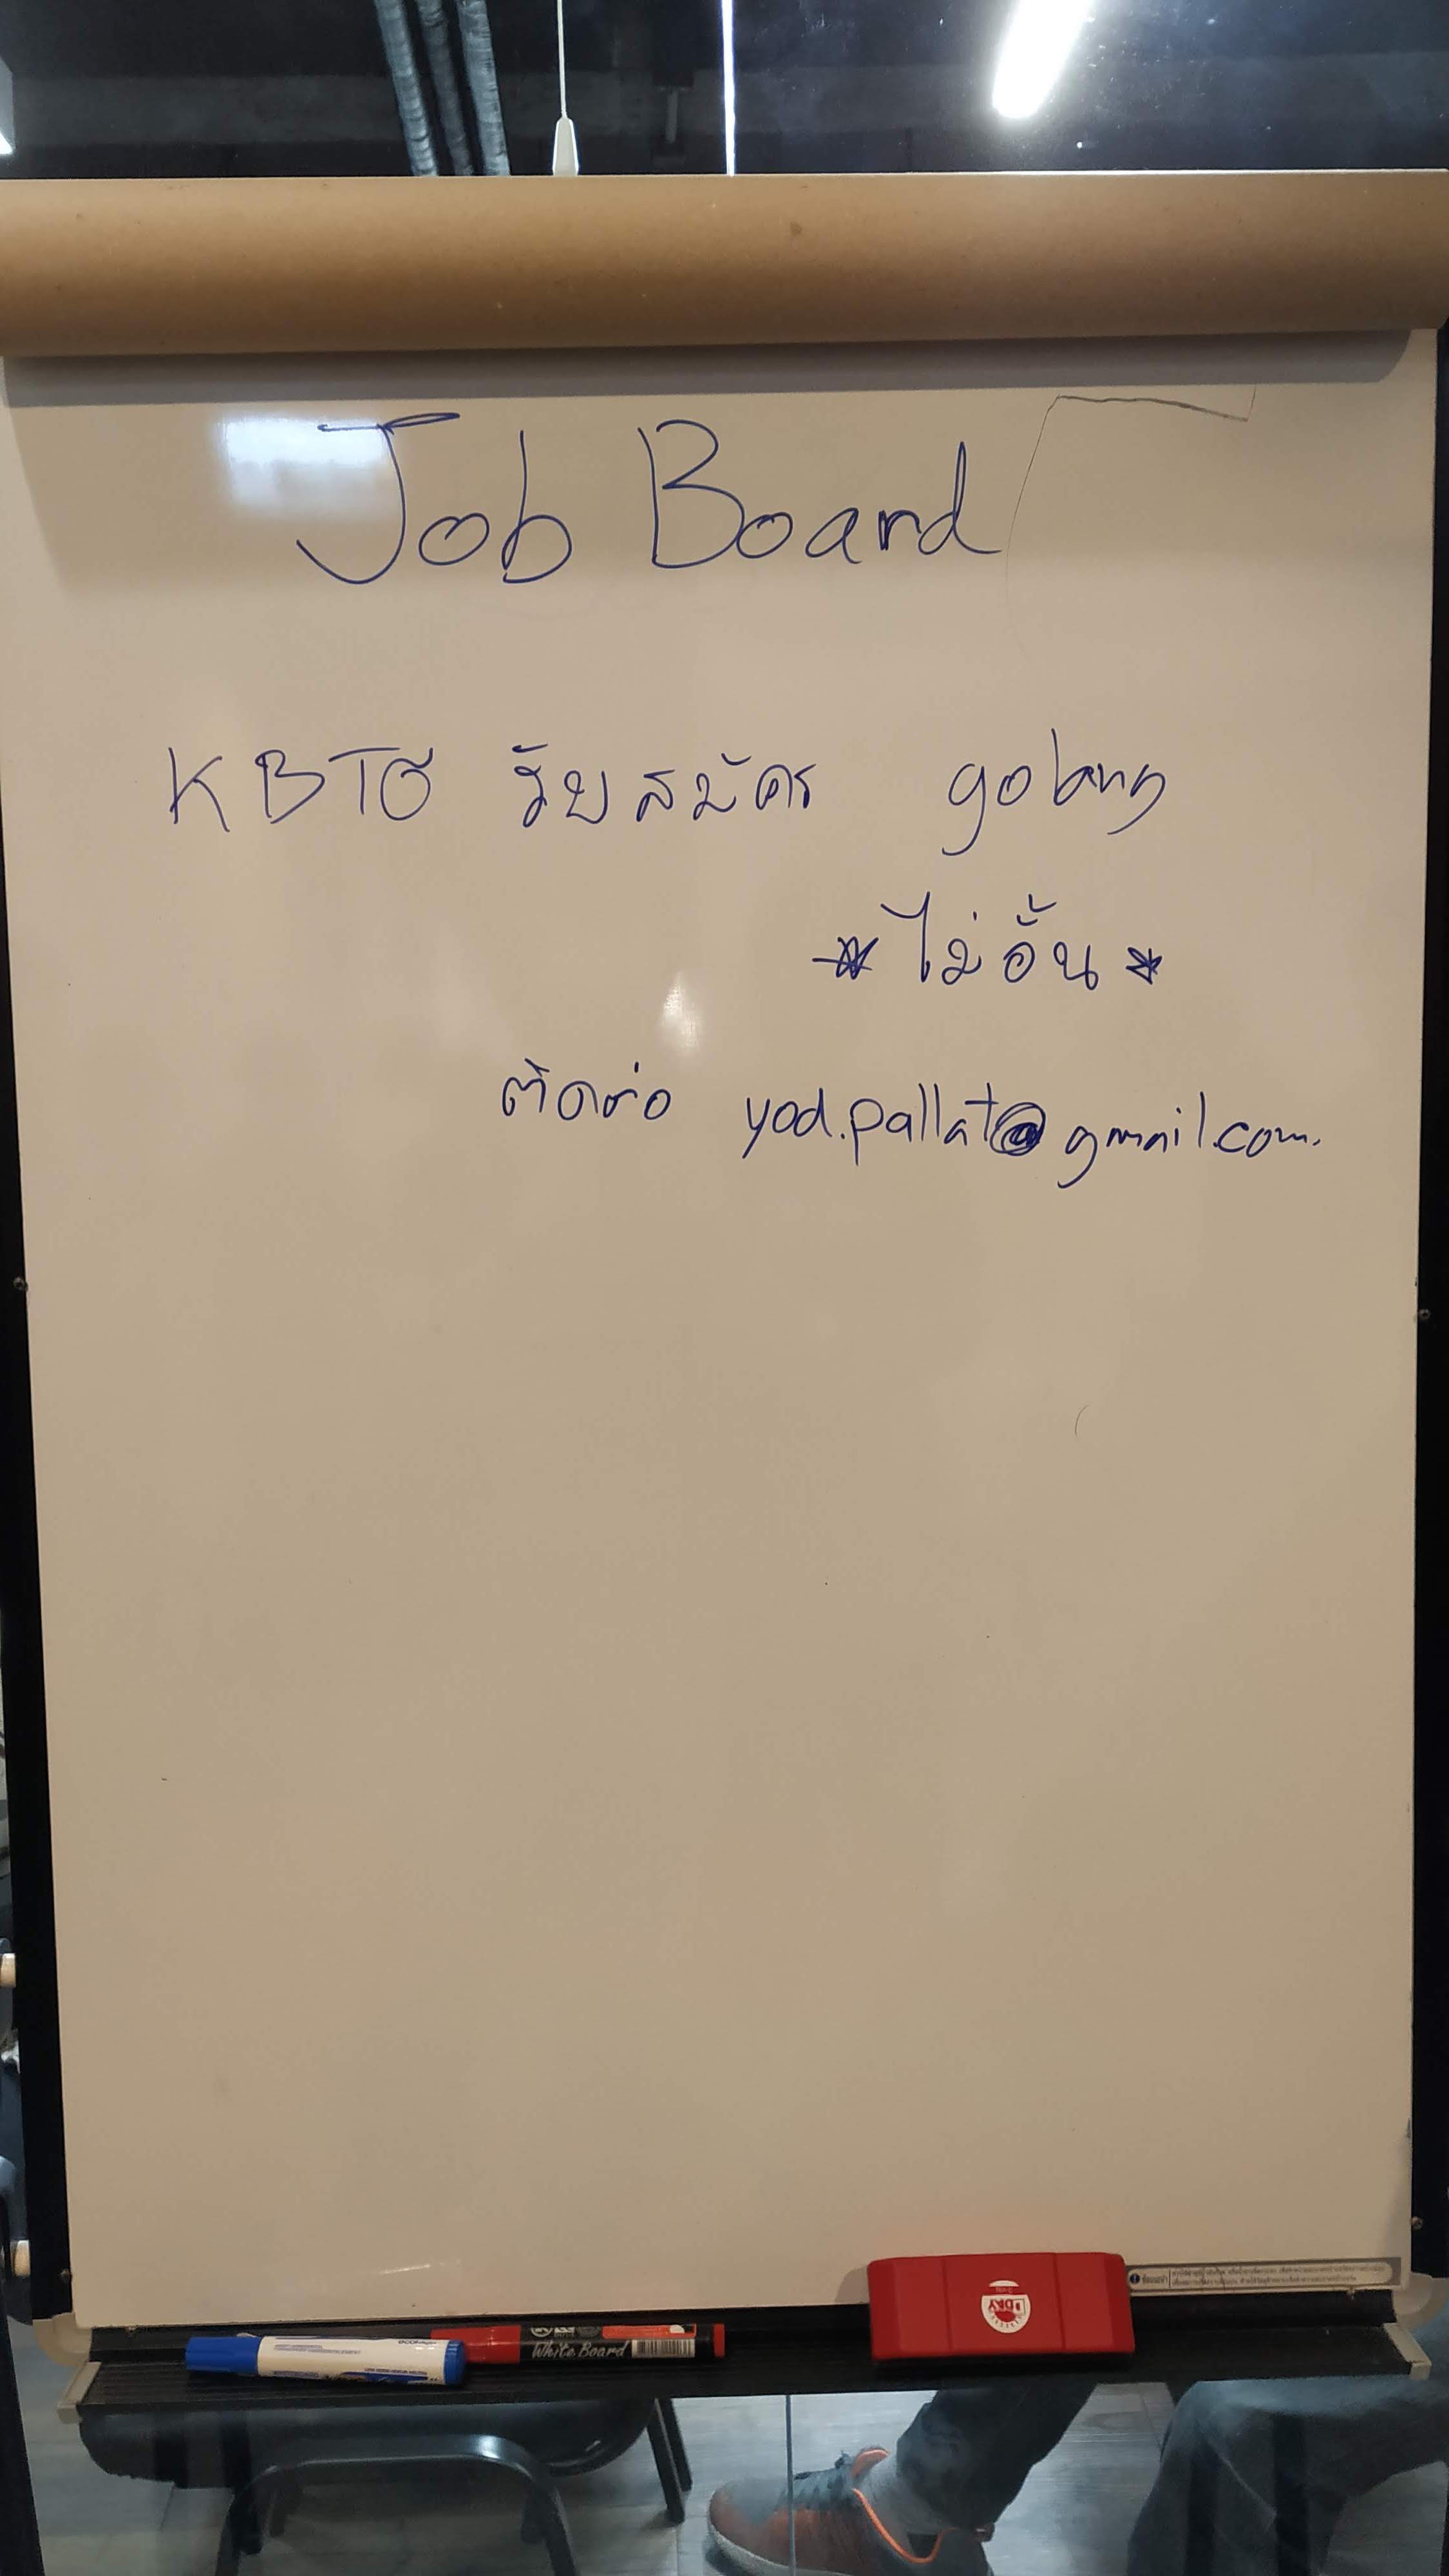 Job Board
KBTG รับสมัคร golang
* ไม่อั้น *
ติดต่อ yod.pallat@gmail.com.
White Board